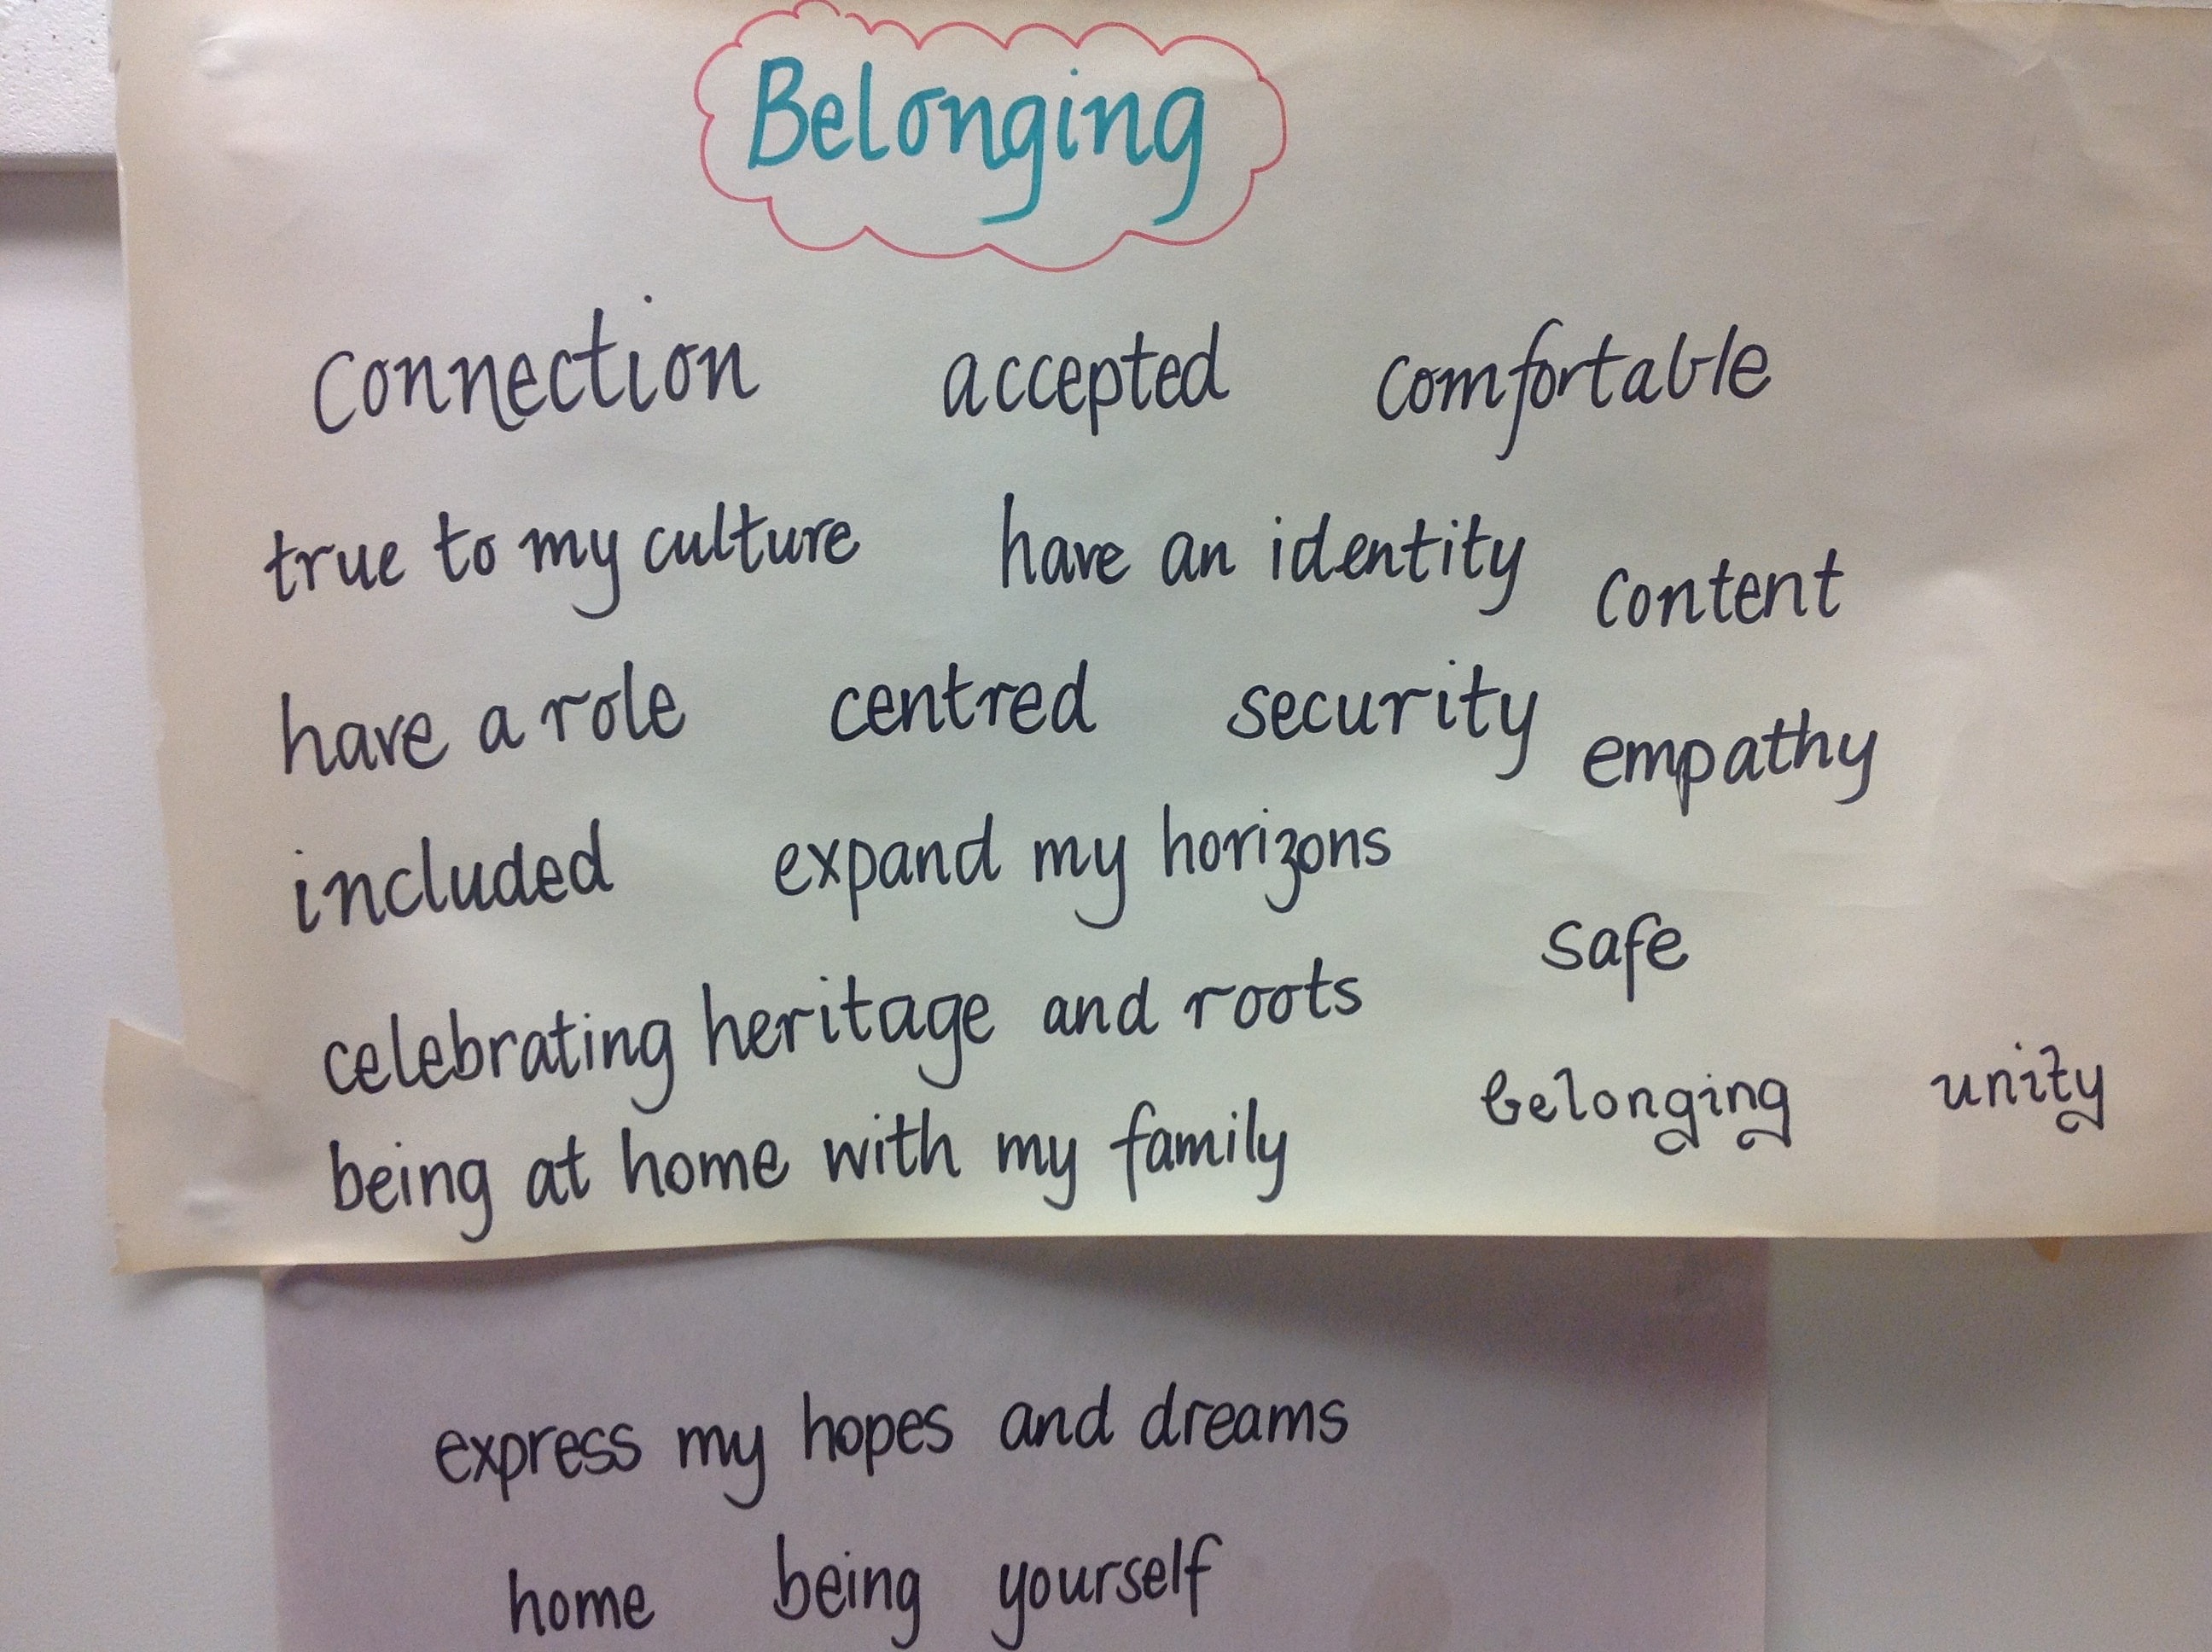 Belonging
Connection accepted comfortable
true to my culture have an identity content
have a role centred security empathy
included expand my horizons
safe
celebrating heritage and roots
belonging unity
being at home with my family
express my hopes and dreams
home being yourself